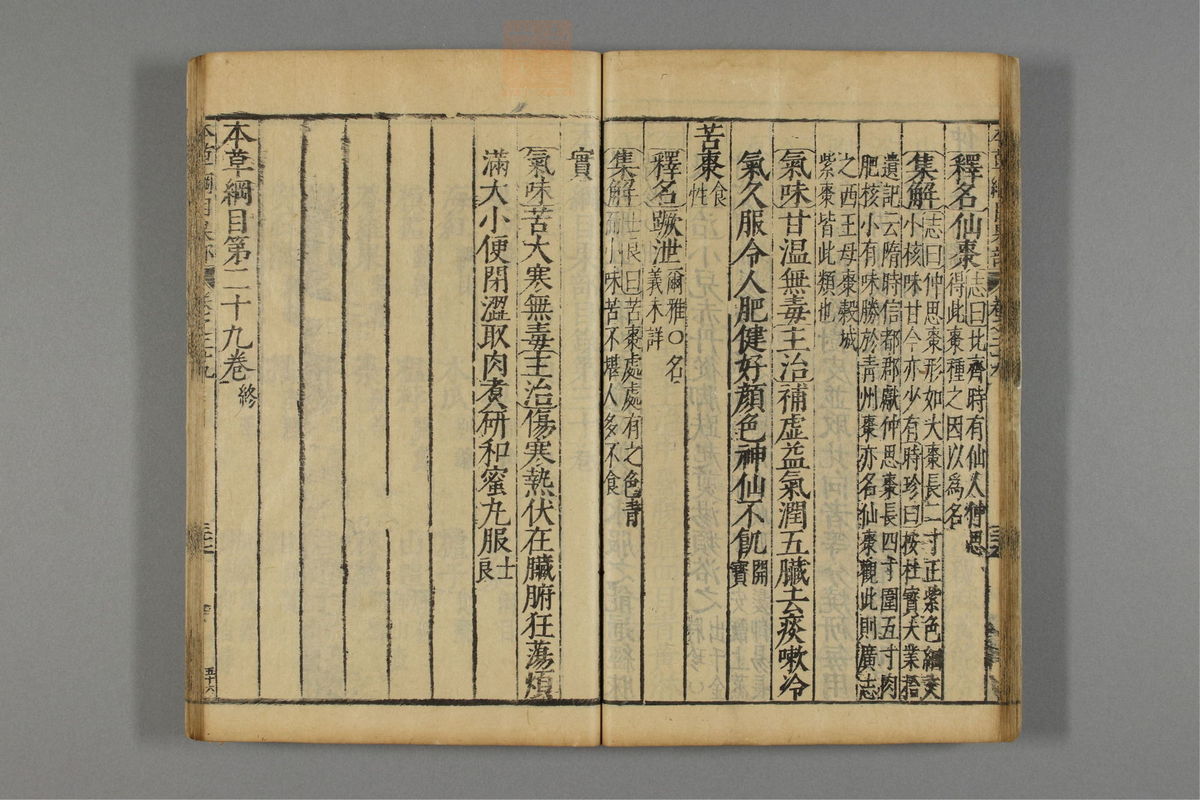 釋名仙棗志曰北齊時有仙人仲思得此棗種之因以爲名
集解志曰仲思棗形如大棗長二寸正紫色細文小核味甘今亦少有時珍曰按杜寶大業拾
遺記云隋時信都郡獻仲思棗長四寸圍五寸肉肥核小有味勝於青州棗亦名仙棗觀此則廣志
之西王母棗穀城紫棗皆此類也
氣味甘温無毒主治補虛益氣潤五臟去痰嗽冷
氣久服令人肥健好顏色神仙不飢開寶
苦棗食性
釋名蹶泄爾雅〇名義未詳
集解士良曰苦棗處處有之色青而小味苦不堪人多不食
實
氣味苦大寒無毒主治傷寒熱伏在臟腑狂蕩煩
滿大小便閉澀取肉煮研和蜜丸服士良
本草綱目第二十九卷終
五十六